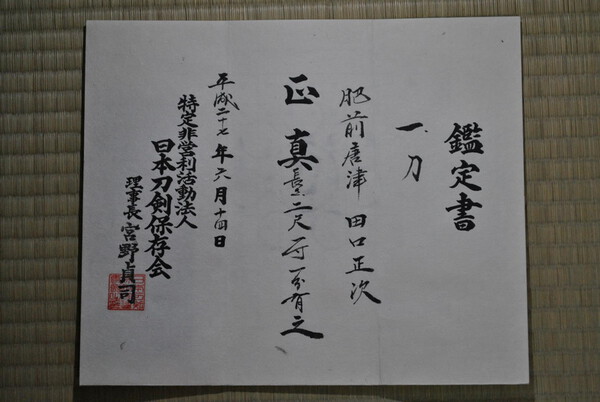 鑑定書
一、刀
肥前唐津 田口正次
正真 長サ二尺一寸一分有之
平成二十七年六月十四日
特定非営利活動法人
日本刀剣保存会
理事長 宮野貞司